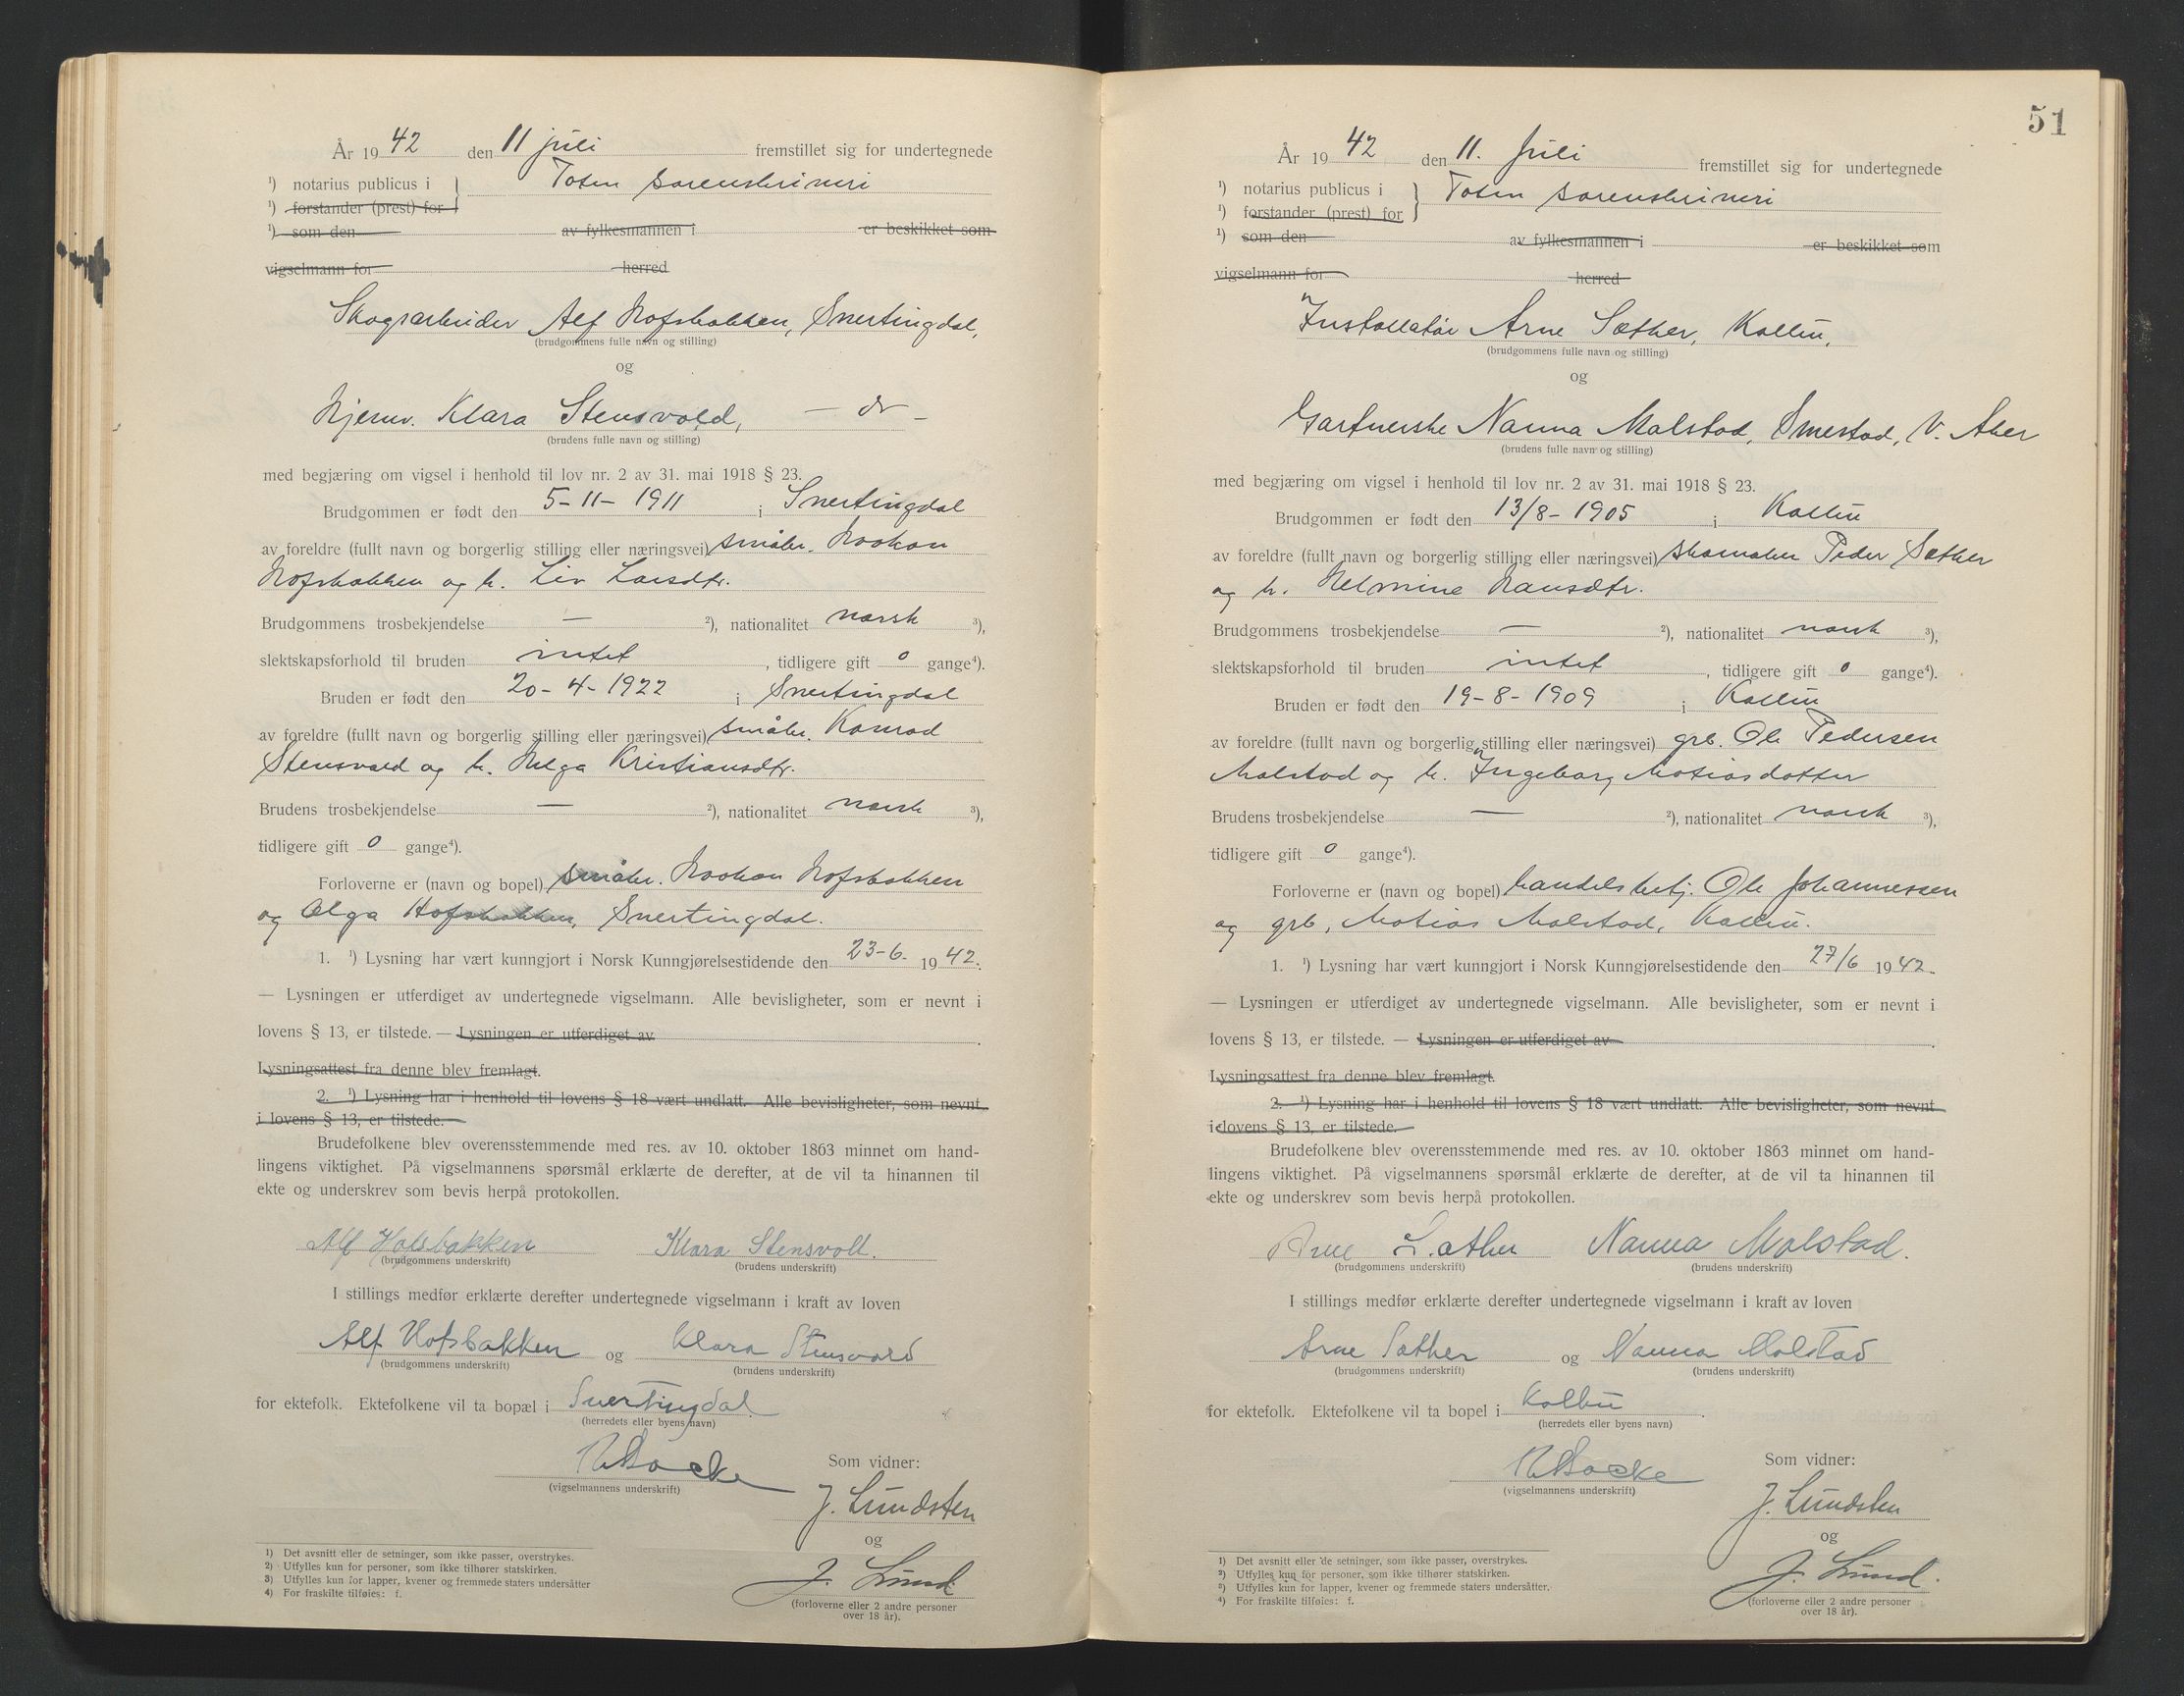 År 1942 den 11 juli fremstillet sig for undertegnede
¹) notarius publicus i } Toten sorenskriveri
¹) forstander (prest) for
¹) som den av fylkesmannen i er beskikket som
vigselmann for herred
Skogsarbeider Alf Hofsbakken, Snertingdal,
(brudgommens fulle navn og stilling)
og
Hjemv. Klara Stensvold, — do —
(brudens fulle navn og stilling)
med begjæring om vigsel i henhold til lov nr. 2 av 31. mai 1918 § 23.
Brudgommen er født den 5-11-1911 i Snertingdal
av foreldre (fullt navn og borgerlig stilling eller næringsvei) småbr. Haakon
Hofsbakken og h. Liv Larsdtr.
Brudgommens trosbekjendelse — ²), nationalitet norsk ³),
slektskapsforhold til bruden intet, tidligere gift 0 gange⁴).
Bruden er født den 20-4-1922 i Snertingdal
av foreldre (fullt navn og borgerlig stilling eller næringsvei) småbr. Konrad
Stensvold og h. Helga Kristiansdtr.
Brudens trosbekjendelse — ²), nationalitet norsk ³),
tidligere gift 0 gange⁴).
Forloverne er (navn og bopel) småbr. Haakon Hofsbakken
og Olga Hofsbakken, Snertingdal.
1. ¹) Lysning har vært kunngjort i Norsk Kunngjørelsestidende den 23-6. 1942.
— Lysningen er utferdiget av undertegnede vigselmann. Alle bevisligheter, som er nevnt i
lovens § 13, er tilstede. — Lysningen er utferdiget av
Lysningsattest fra denne blev fremlagt.
2. ¹) Lysning har i henhold til lovens § 18 vært undlatt. Alle bevisligheter, som nevnt
i lovens § 13, er tilstede.
Brudefolkene blev overensstemmende med res. av 10. oktober 1863 minnet om hand-
lingens viktighet. På vigselmannens spørsmål erklærte de derefter, at de vil ta hinannen til
ekte og underskrev som bevis herpå protokollen.
Alf Hofsbakken Klara Stensvoll.
(brudgommens underskrift) (brudens underskrift)
I stillings medfør erklærte derefter undertegnede vigselmann i kraft av loven
Alf Hofsbakken og Klara Stensvold
(brudgommens underskrift) (brudens underskrift)
for ektefolk. Ektefolkene vil ta bopæl i Snertingdal
(herredets eller byens navn)
Som vidner:
(vigselmannens underskrift)
J. Lundsten
og
J. Lund
(forloverne eller 2 andre personer
over 18 år).
1) Det avsnitt eller de setninger, som ikke passer, overstrykes.
2) Utfylles kun for personer, som ikke tilhører statskirken.
3) Utfylles kun for lapper, kvener og fremmede staters undersåtter
4) For fraskilte tilføies: f.
51
År 1942 den 11. Juli fremstillet sig for undertegnede
¹) notarius publicus i } Toten sorenskriveri
¹) forstander (prest) for
¹) som den av fylkesmannen i er beskikket som
vigselmann for herred
Installatør Arne Sæther, Kolbu,
(brudgommens fulle navn og stilling)
og
Gartnerske Nanna Malstad, Smestad, V. Aker
(brudens fulle navn og stilling)
med begjæring om vigsel i henhold til lov nr. 2 av 31. mai 1918 § 23.
Brudgommen er født den 13/8-1905 i Kolbu
av foreldre (fullt navn og borgerlig stilling eller næringsvei) skomaker Peder Sæther
og h. Helmine Hansdtr.
Brudgommens trosbekjendelse — ²), nationalitet norsk ³),
slektskapsforhold til bruden intet, tidligere gift 0 gange⁴).
Bruden er født den 19-8-1909 i Kolbu
av foreldre (fullt navn og borgerlig stilling eller næringsvei) grb. Ole Pedersen
Malstad og h. Ingeborg Matiasdotter
Brudens trosbekjendelse — ²), nationalitet norsk ³),
tidligere gift 0 gange⁴).
Forloverne er (navn og bopel) handelsbetj. Ole Johannessen
og grb, Matias Malstad, Kolbu.
1. ¹) Lysning har vært kunngjort i Norsk Kunngjørelsestidende den 27/6 1942.
— Lysningen er utferdiget av undertegnede vigselmann. Alle bevisligheter, som er nevnt i
lovens § 13, er tilstede. — Lysningen er utferdiget av
Lysningsattest fra denne blev fremlagt.
2. ¹) Lysning har i henhold til lovens § 18 vært undlatt. Alle bevisligheter, som nevnt
i lovens § 13, er tilstede.
Brudefolkene blev overensstemmende med res. av 10. oktober 1863 minnet om hand-
lingens viktighet. På vigselmannens spørsmål erklærte de derefter, at de vil ta hinannen til
ekte og underskrev som bevis herpå protokollen.
Arne Sæther Nanna Malstad.
(brudgommens underskrift) (brudens underskrift)
I stillings medfør erklærte derefter undertegnede vigselmann i kraft av loven
Arne Sæther og Nanna Malstad
(brudgommens underskrift) (brudens underskrift)
for ektefolk. Ektefolkene vil ta bopel i Kolbu
(herredets eller byens navn)
Som vidner:
(vigselmannens underskrift)
J. Lundsten
og
J. Lund.
(forloverne eller 2 andre personer
over 18 år).
¹) Det avsnitt eller de setninger, som ikke passer, overstrykes.
²) Utfylles kun for personer, som ikke tilhører statskirken.
³) Utfylles kun for lapper, kvener og fremmede staters undersåtter.
⁴) For fraskilte tilføies: f.